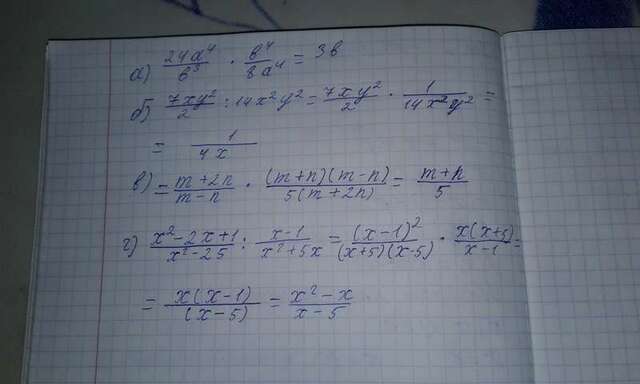 а) 24a⁴/в³ · в⁴/8a⁴ = 3в
б) 7xy²/2 : 14x²y² = 7xy²/2 · 1/14x²y² =
= 1/4x
в) = m+2n/m-n · (m+n)(m-n)/5(m+2n) = m+n/5
г) x²-2x+1/x²-25 : x-1/x²+5x = (x-1)²/(x+5)(x-5) · x(x+5)/x-1 =
= x(x-1)/(x-5) = x²-x/x-5